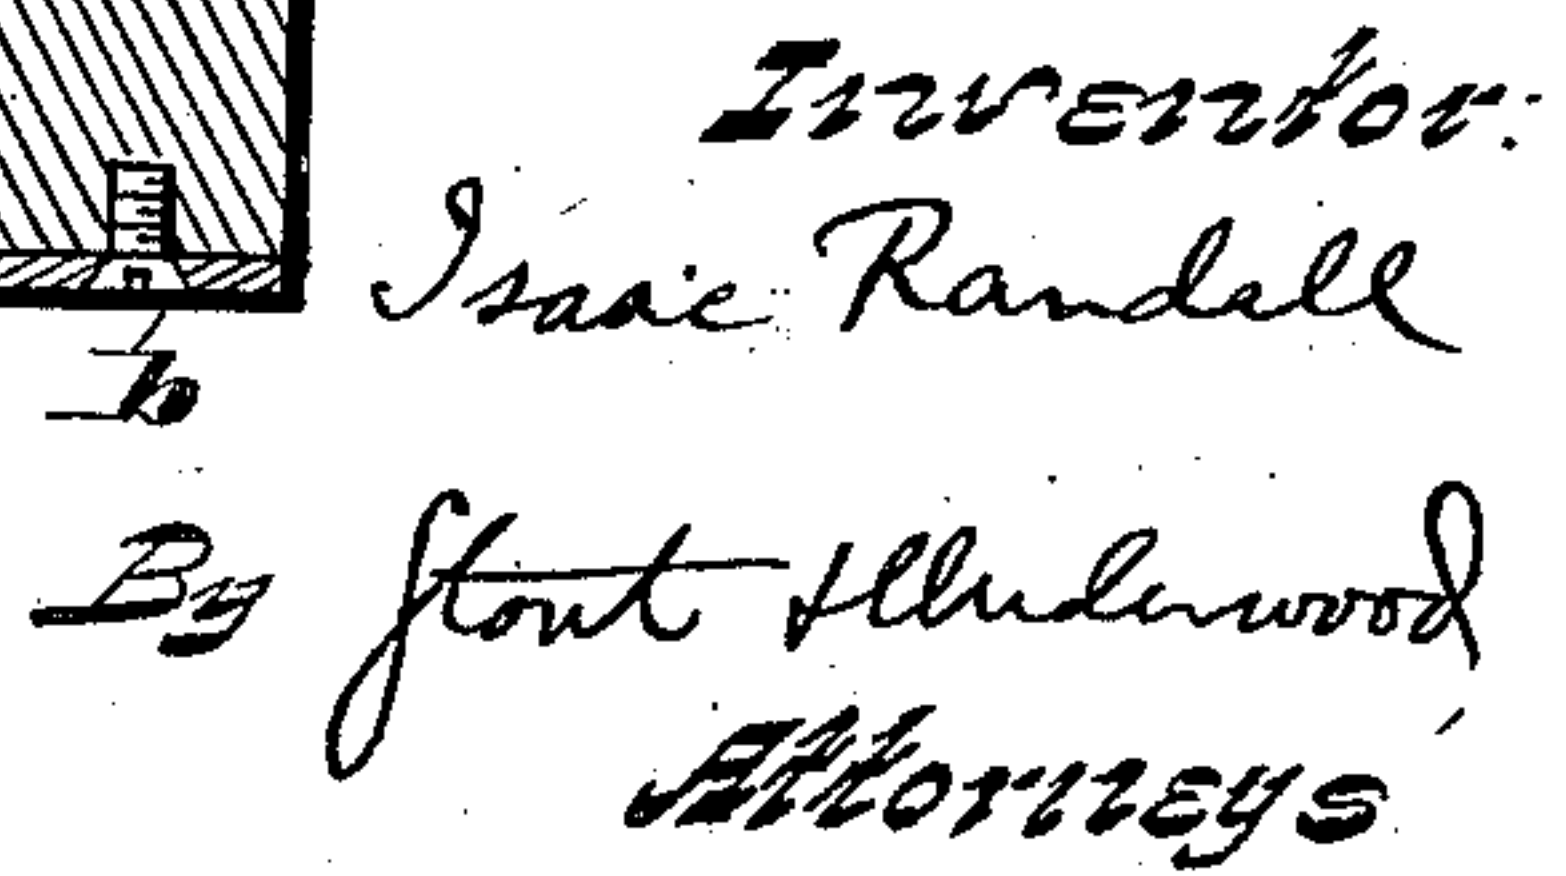 Inventor:
Isaac Randall
b
By Stout & Underwood
Attorneys